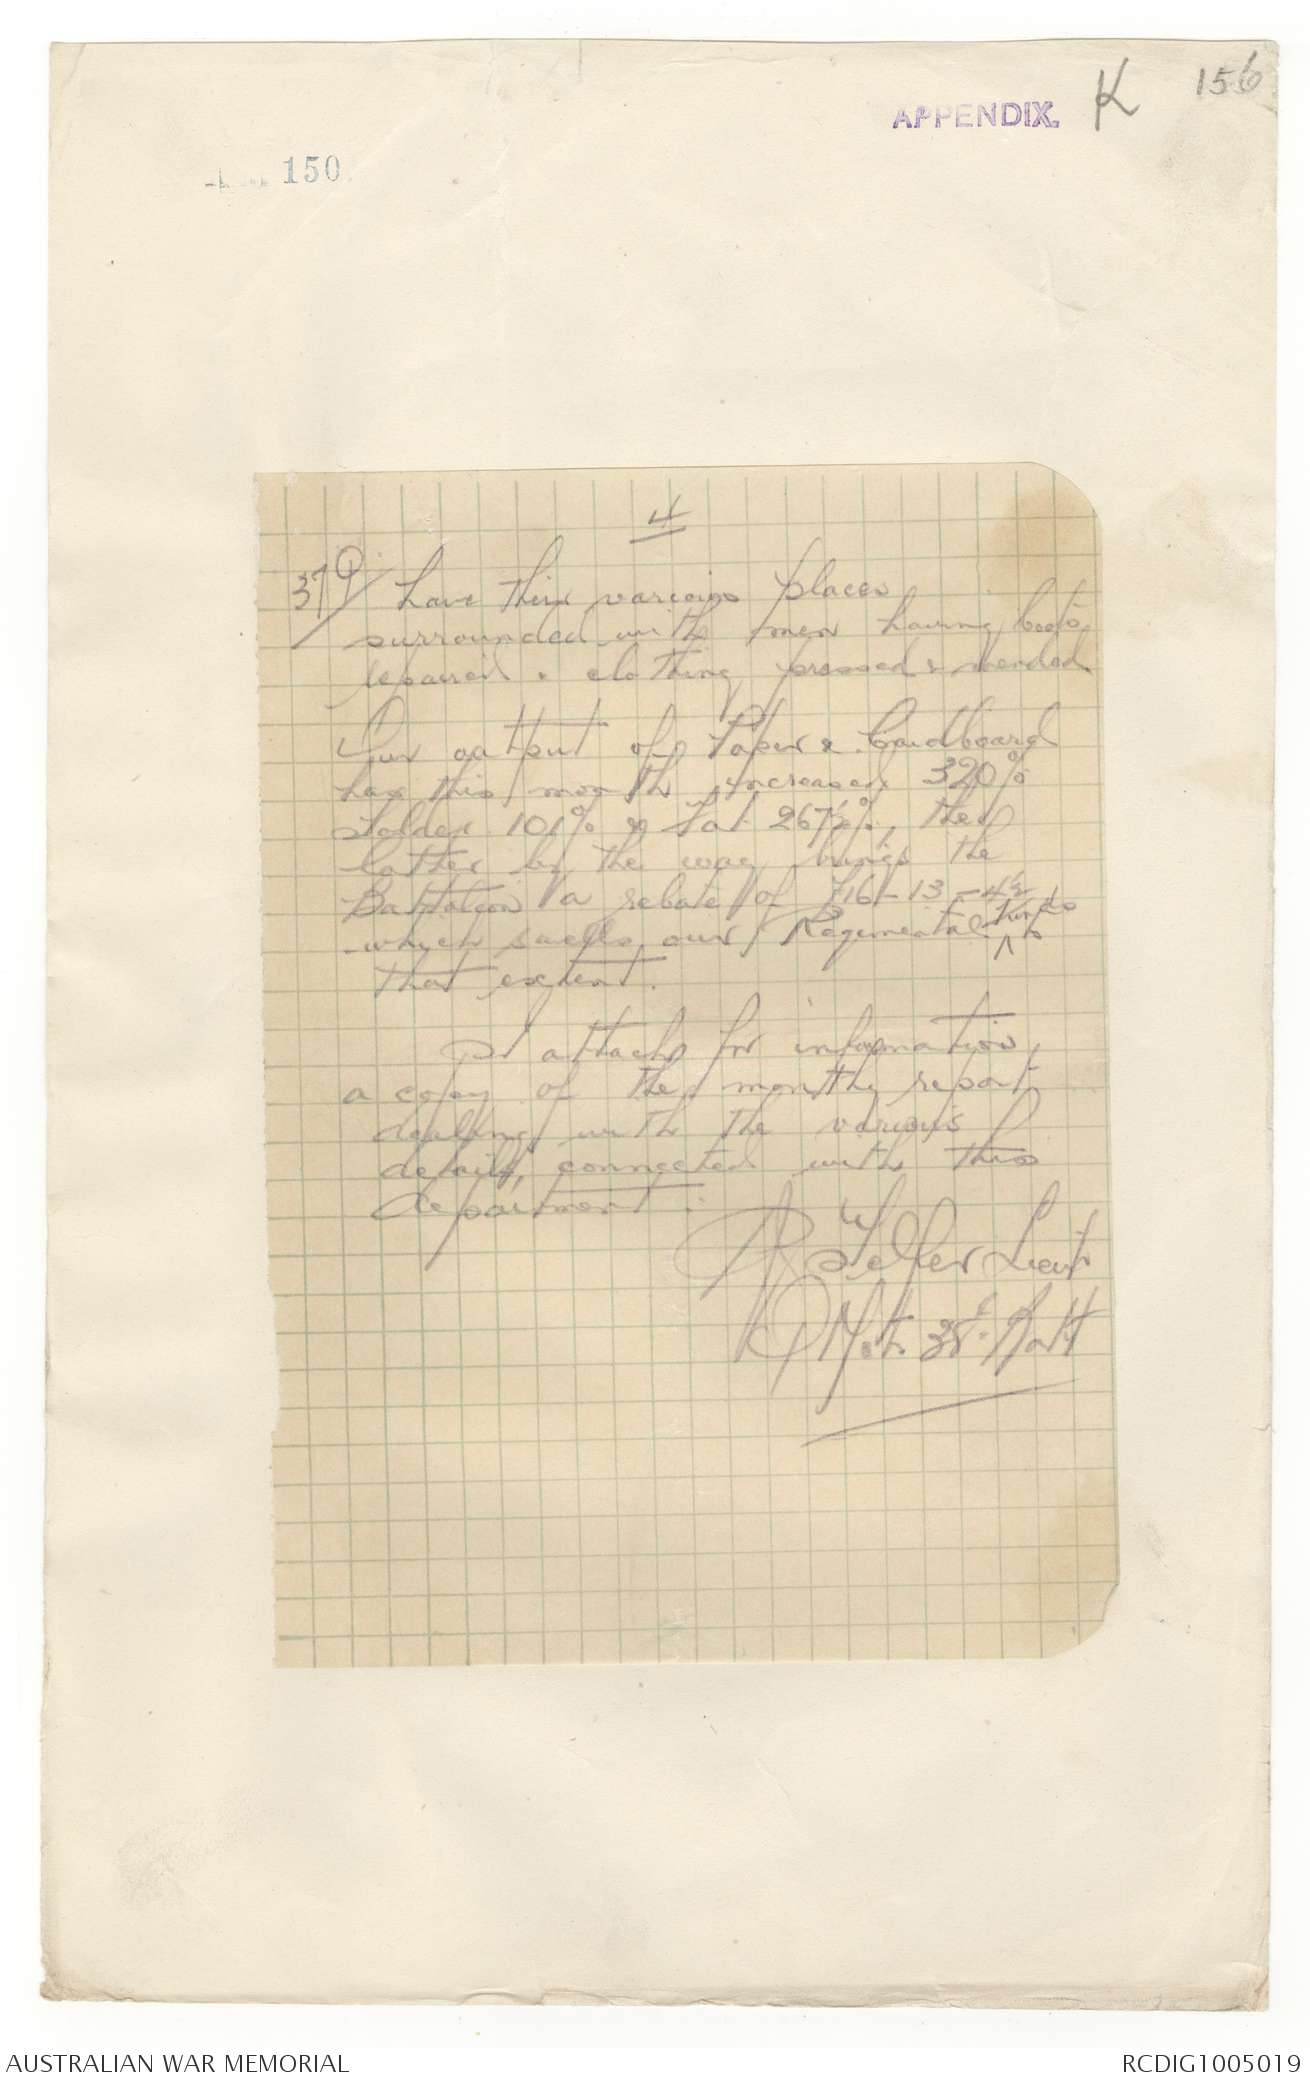 APPENDIX. K 156
150
4
37Q/ have their various places
surrounded with men having boots
repaired & clothing pressed & mended
Our output of Paper & Cardboard
has this month increased 320%
Solder 101% & Fat 267½%, the
latter by the way brings the
Battalion a rebate of £16-13-4½
which swells our Regimental Funds to
that extent.
I attach for information,
a copy of the monthly report
dealing with the various
details, connected with this
department.
Telfer Lieut
QMstr. 38th Batt
AUSTRALIAN WAR MEMORIAL
RCDIG1005019